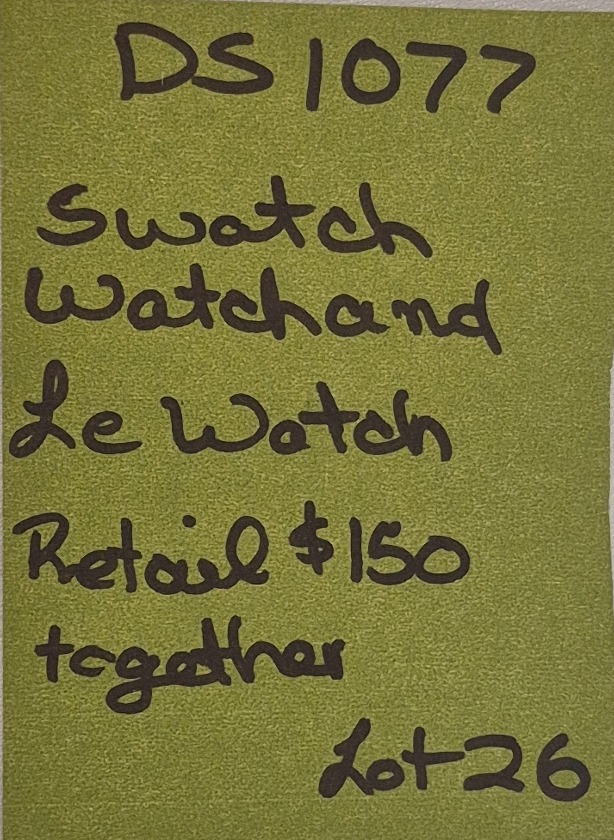 DS 1077
Swatch
Watch and
Le Watch
Retail $150
together
Lot 26